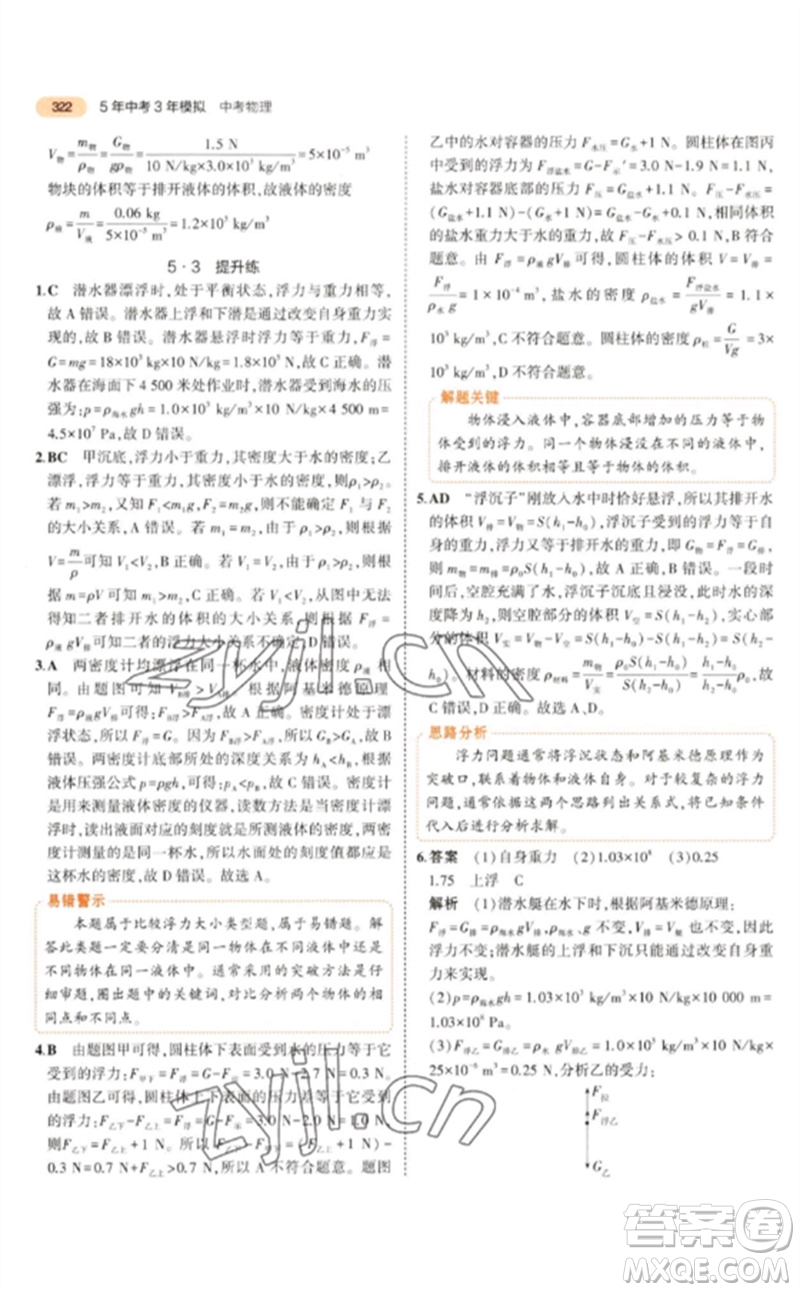 322 5年中考3年模拟 中考物理
V物=m物/ρ物=G物/gρ物=1.5 N/(10 N/kg×3.0×10³ kg/m³)=5×10⁻⁵ m³
物块的体积等于排开液体的体积,故液体的密度
ρ液=m/V液=0.06 kg/(5×10⁻⁵ m³)=1.2×10³ kg/m³
5·3 提升练
1.C 潜水器漂浮时,处于平衡状态,浮力与重力相等,
故 A 错误。潜水器上浮和下潜是通过改变自身重力实
现的,故 B 错误。潜水器悬浮时浮力与重力相等,F浮=
G=mg=18×10³ kg×10 N/kg=1.8×10⁵ N,故 C 正确。潜
水器在海面下 4 500 米处作业时,潜水器受到海水的压
强为:p=ρ海水gh=1.0×10³ kg/m³×10 N/kg×4 500 m=
4.5×10⁷ Pa,故 D 错误。
2.BC 甲沉底,浮力小于重力,其密度大于水的密度;乙
漂浮,浮力等于重力,其密度小于水的密度,则 ρ₁>ρ₂。
若 m₁>m₂,又 F₁<m₁g,则不能确定 F₁ 与 F₂ 的大小关
系,故 A 错误。若 m₁<m₂,根据题图可知 ρ₁>ρ₂,根据
V=m/ρ可知 V₁<V₂,B 正确。若 V₁=V₂,根据题图可知
ρ₁>ρ₂,可知 m₁>m₂,C 正确。若 V₁<V₂,从图中无法
得知二者排开水的体积的大小关系,则根据 F浮=
ρ液gV排可知二者的浮力大小关系不能确定,D 错误。
3.A 两密度计均漂浮在同一杯水中,液体的密度 ρ液 相
同。由题图可知 V B排>V A排,根据阿基米德原理
F浮=ρ液gV排可知,F B浮>F A浮,故 B 错误。密度计处于漂
浮状态,所以 F浮=G。因为 F B浮>F A浮,所以 G A<G B,故
A 正确。两密度计底部所处的深度关系为 h A<h B,根据
液体压强公式 p=ρgh,可得 p A<p B,故 C 错误。密度计
是用来测量液体密度的仪器,读数方法是当密度计漂
浮时,读出液面对应的刻度就是所测量的密度,两密
度计测量的是同一杯水,所以水面处的刻度数值应该
是相同的,都是水的密度值,故 D 错误。
易错警示
本题属于比较浮力大小类型题,属于易错题。解
答此类题一定要分清是同一物体在不同液体中还
是不同物体在同种液体中。通常采用的突破方法是仔
细审题,圈出题中的关键词,对比分析两个物体的相
同点和不同点。
4.B 由题图甲可得,圆柱体下表面受到水的压力等于它
受到的浮力:F甲下=F浮=G-F示=3.0 N-2.7 N=0.3 N。
由题图乙可得,圆柱体上下表面受到水的压力差等于它
受到的浮力:F乙下-F乙上=F浮′=G-F示′=3.0 N-2.0 N=1.0 N,
则F乙下=F乙上+1 N。所以 F乙下-F甲下=F乙上+1 N-
0.3 N=F乙上+0.7 N>0.7 N,所以 A 不符合题意。题图
乙中的水对容器的压力 F水压=G水+1 N。圆柱体在图丙
中受到的浮力 F浮盐水=G-F示″=3.0 N-1.9 N=1.1 N,
盐水对容器底部的压力 F压=G盐水+1.1 N。F压-F水压=
(G盐水+1.1 N)-(G水+1 N)=G盐水-G水+0.1 N,相同体积
的盐水重力大于水的重力,所以 F压-F水压>0.1 N,故 B
符合题意。由 F浮=ρ水gV排 可得,圆柱体的体积 V=V排=
F浮/ρ水g=1×10⁻⁴ m³,盐水的密度 ρ盐水=F浮盐水/gV排=1.1×
10³ kg/m³,C 不符合题意。圆柱体的密度 ρ柱=G/Vg=3×
10³ kg/m³,D 不符合题意。
解题关键
物体浸入液体中,容器底部增加的压力等于物
体受到的浮力。同一个物体浸没在不同的液体中,
排开液体的体积相等且等于物体的体积。
5.AD “浮沉子”刚放入水中时恰好悬浮,所以其排开水
的体积 V排=V物=S(h₁-h₀),浮沉子受到的浮力等于自
身的重力,浮力又等于排开水的重力,所以浮沉子的质
量 m物=m排=ρ₀S(h₁-h₀),A 正确,B 错误。一段时间
后,空腔充满了水,浮沉子沉底且浸没,此时水的深
度降为 h₂,所以空腔部分的体积 V空=S(h₁-h₂),实心部
分体积 V实=V物-V空=S(h₁-h₀)-S(h₁-h₂)=S(h₂-
h₀)。材料的密度 ρ材料=m物/V实=ρ₀S(h₁-h₀)/S(h₂-h₀)=(h₁-h₀)/(h₂-h₀)ρ₀。故
C 错误,D 正确。故选 A、D。
思路分析
浮力问题通常将浮沉状态和阿基米德原理作为
突破口,联系着物体和液体自身。对于较复杂的浮力
问题,尽量依据这两个思路列出关系式,将已知条件
代入后进行分析求解。
6.答案 (1)自身重力 (2)1.03×10⁸ (3)0.25
1.75 上浮 C
解析 (1)潜水艇在水下时,根据阿基米德原理:
F浮=G排=ρ海水gV排,ρ海水、g 不变,V排=V艇 也不变,因此
浮力不变;潜水艇的上浮和下沉只能通过改变自身重
力来实现。
(2)p=ρ海水gh=1.03×10³ kg/m³×10 N/kg×10⁴ m=
1.03×10⁸ Pa。
(3)F浮乙=G排乙=ρ水gV排乙=1.0×10³ kg/m³×10 N/kg×
25×10⁻⁶ m³=0.25 N,分析乙的受力:
F拉
F浮乙
G乙
zyjl.cn
zyjl.cn
答案圈
MXQE.COM